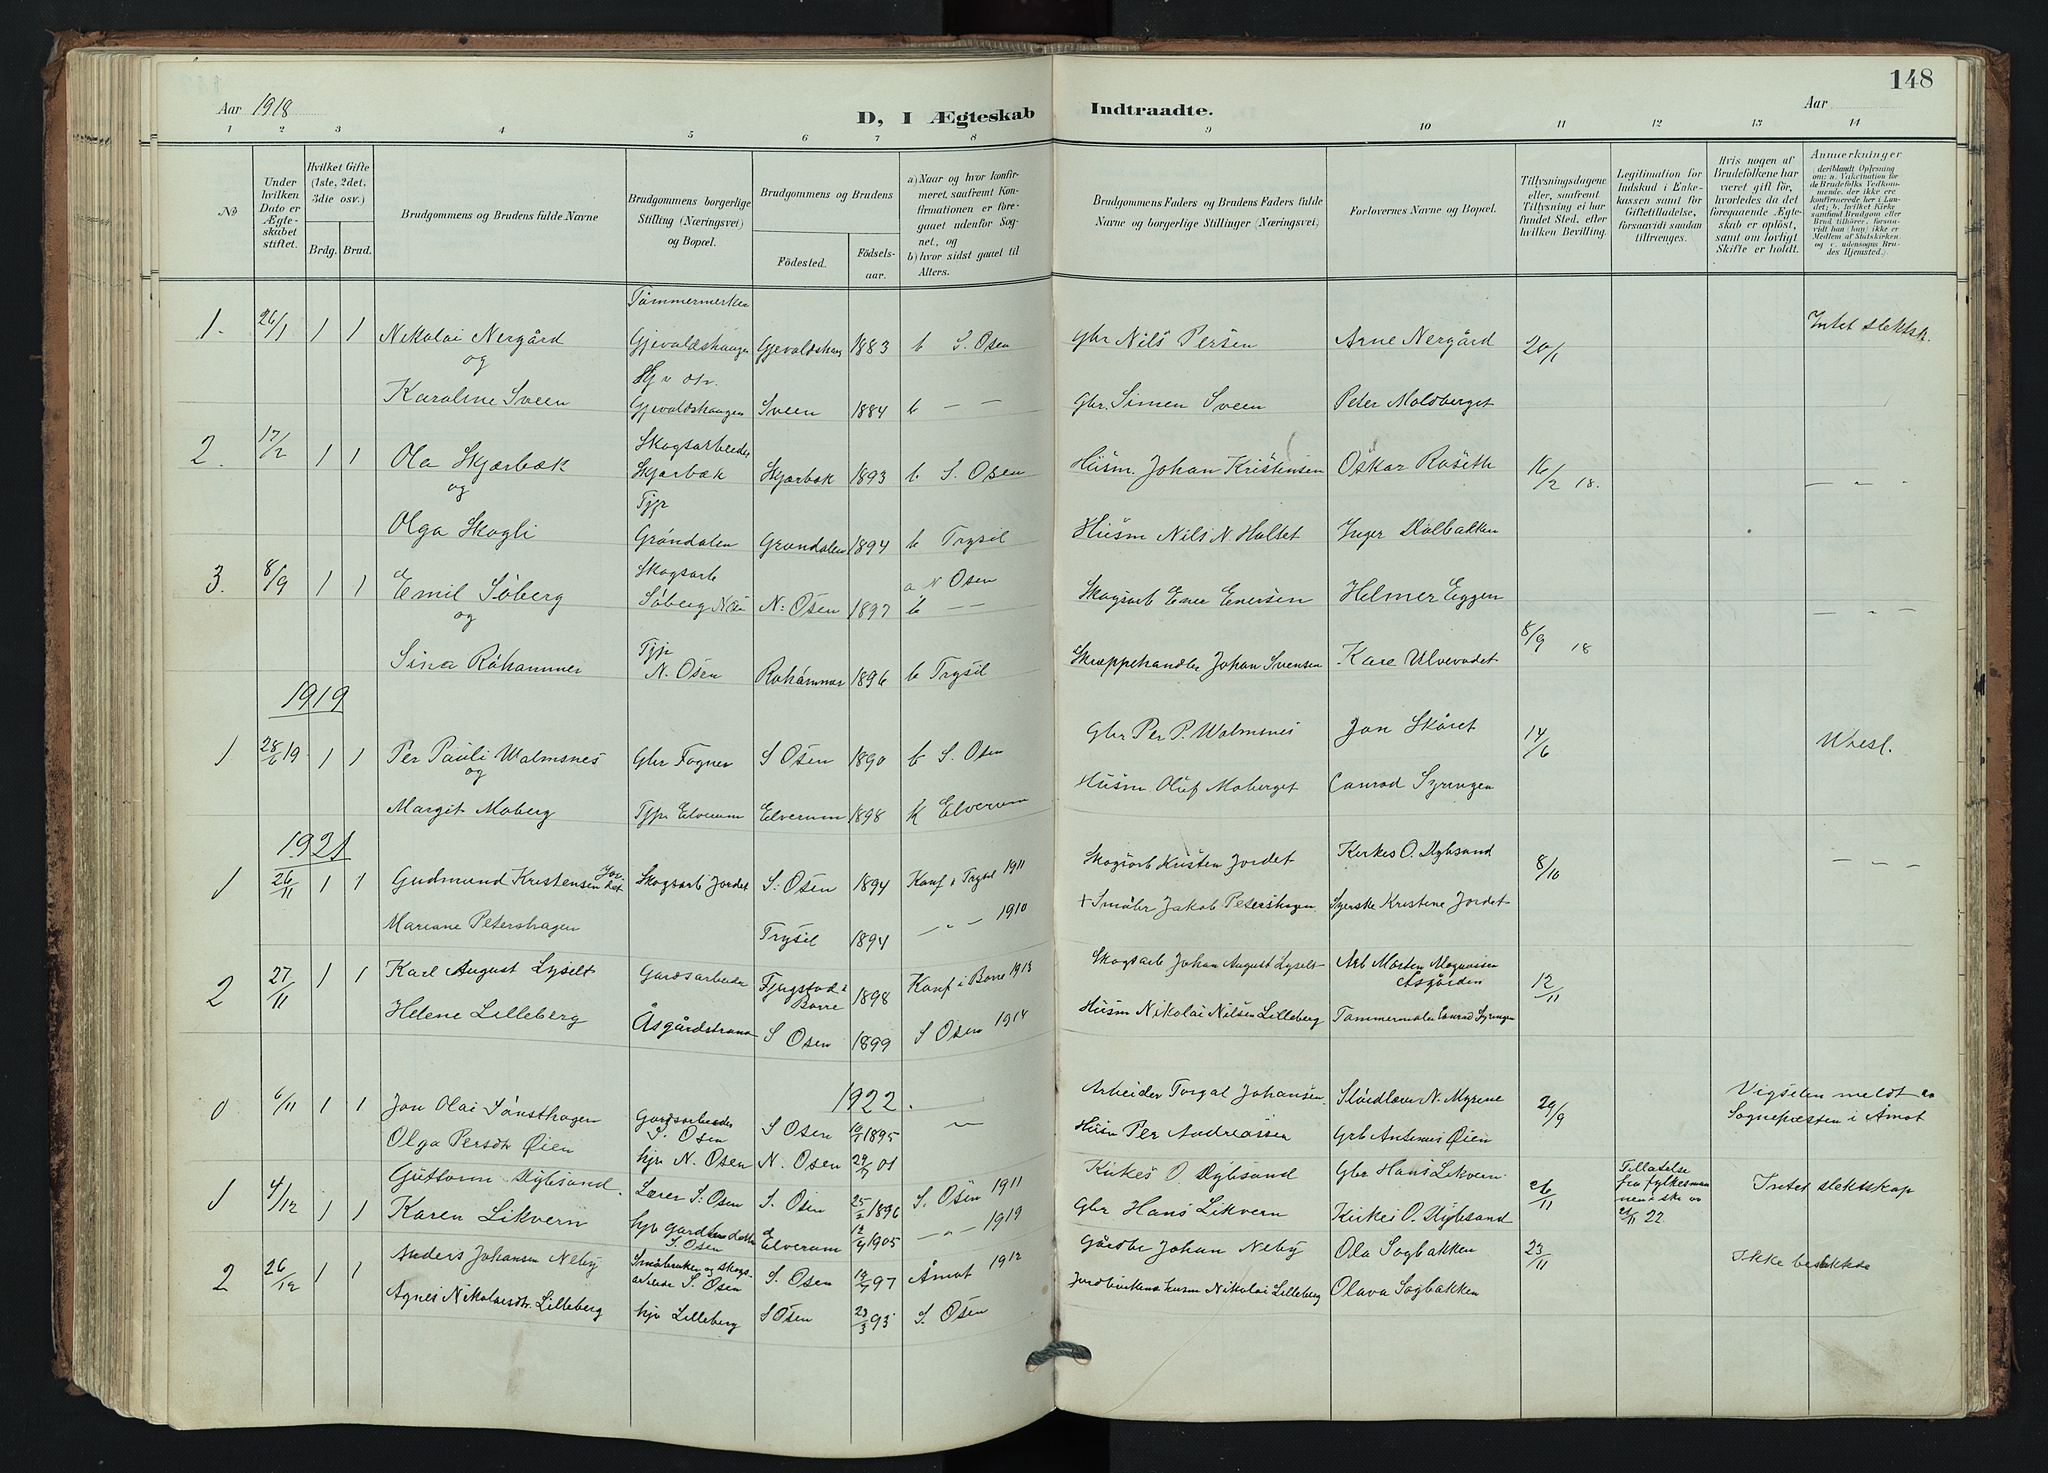 148
Aar 1918
D, I Ægteskab Indtraadte.
Aar
1 2 3 4 5 6 7 8 9 10 11 12 13 14
No
Under hvilken Dato er Ægteskabet stiftet.
Hvilket Gifte (1ste, 2det, 3die osv.)
Brdg. Brud.
Brudgommens og Brudens fulde Navne
Brudgommens borgerlige Stilling (Næringsvei) og Bopæl.
Brudgommens og Brudens
Fødested. Fødselsaar.
a) Naar og hvor konfirmeret, saafremt Konfirmationen er foregaaet udenfor Sognet, og
b) hvor sidst gaaet til Alters.
Brudgommens Faders og Brudens Faders fulde Navne og borgerlige Stillinger (Næringsvei)
Forlovernes Navne og Bopæl.
Tillysningsdagene eller, saafremt Tillysning ei har fundet Sted, efter hvilken Bevilling.
Legitimation for Indskud i Enkekassen samt for Giftetilladelse, forsaavidt saadan tiltrænges.
Hvis nogen af Brudefolkene har været gift før, hvorledes da det foregaaende Ægteskab er opløst, samt om lovligt Skifte er holdt.
Anmerkninger
Tømmermerker
1. 26/1 1 1 Nikolai Nergård Gjevaldshaugen Gjevaldshaug 1883 b S. Osen Gbr Nils Persen Arne Nergård 20/1 Intet slektsk.
og
Karoline Sveen Gjevaldshaugen Sveen 1884 b — — Gbr. Simen Sveen Peter Moldberget
2. 17/2 1 1 Ola Skjærbæk Skogsarbeider Skjærbæk Skjærbæk 1893 b S. Osen Husm. Johan Kristensen Oskar Roseth 16/2 18. — " "
og
Olga Skogli Tjp Grøndalen Grøndalen 1894 b Trysil Husm Nils N Holtet Inger Dalbakken
3. 8/9 1 1 Emil Søberg Skogsarb Søberg N. Osen 1897 a N Osen b — — Skogsarb Ener Enersen Helmer Eggen 8/9 18 — " —
og
Sina Røhammer Tjp N. Osen Røhammer 1896 b Trysil Skræppehandler Johan Svensen Kare Ulvevadet
1919
1 28/6 19 1 1 Per Pauli Walmsnes Gbr Fogner S Osen 1890 b S. Osen Gbr Per P. Walmsnes Jon Skåret 14/6
og
Margit Moberg Tjp Elverum Elverum 1898 k Elverum Husm. Oluf Moberget Conrad Syringen
1921
1 26/11 1 1 Gudmund Kristensen Jordet Skogsarb Jordet S. Osen 1894 Konf i Trysil 1911 Skogsarb Kristen Jordet Kirkes O. Dybsand 8/10 — — —
Mariane Petershagen Trysil 1894 — " — 1910 + Småbr Jakob Petershagen Syerske Kristene Jordet
2 27/11 1 1 Karl August Lyselt Gardsarbeider Borre 1898 Konf i Borre 1913 Skogsarb Johan August Lyselt Arb Morten Magnussen Åsgården 12/11
Helene Lilleberg Åsgårdstrand S Osen 1899 S Osen 1914 Husm Nikolai Nilsen Lilleberg Tømmermåler Conrad Syringen
1922.
0 6/11 1 1 Jon Olai Sønsthagen Gardsarbeider S. Osen S Osen 10/1 1895 — Arbeider Torgal Johansen. Sløidlærer N. Myrene 29/9 Vigselen meldt av Sognepresten i Åmot
Olga Persdtr Øien hjv N. Osen N. Osen 29/7 01 Husm Per Andreassen Grb Antenius Øien
1 4/12 1 1 Guttorm Dybsand. Lærer S. Osen S. Osen 25/2 1896 S. Osen 1911 Kirkes O. Dybsand Gbr Hans Likvern 26/11 Tilladelse fra fylkesmannen 21/11 22 Intet slektskap
Karen Likvern hjv S Osen Elverum 12/4 1905 — " — 1919 Gbr Hans Likvern Kirkes O. Dybsand
2 26/12 1 1 Anders Johansen Neby Småbruker og skogsarbeider S. Osen S. Osen 19/7 97 Åmot 1912 Gårdbr Johan Neby Ola Sagbakken 23/11 Ikke beslektede
Agnes Nikolaisdtr. Lilleberg hjv Lilleberg S Osen 23/3 93 S. Osen Nikolai Lilleberg Olava Sagbakken